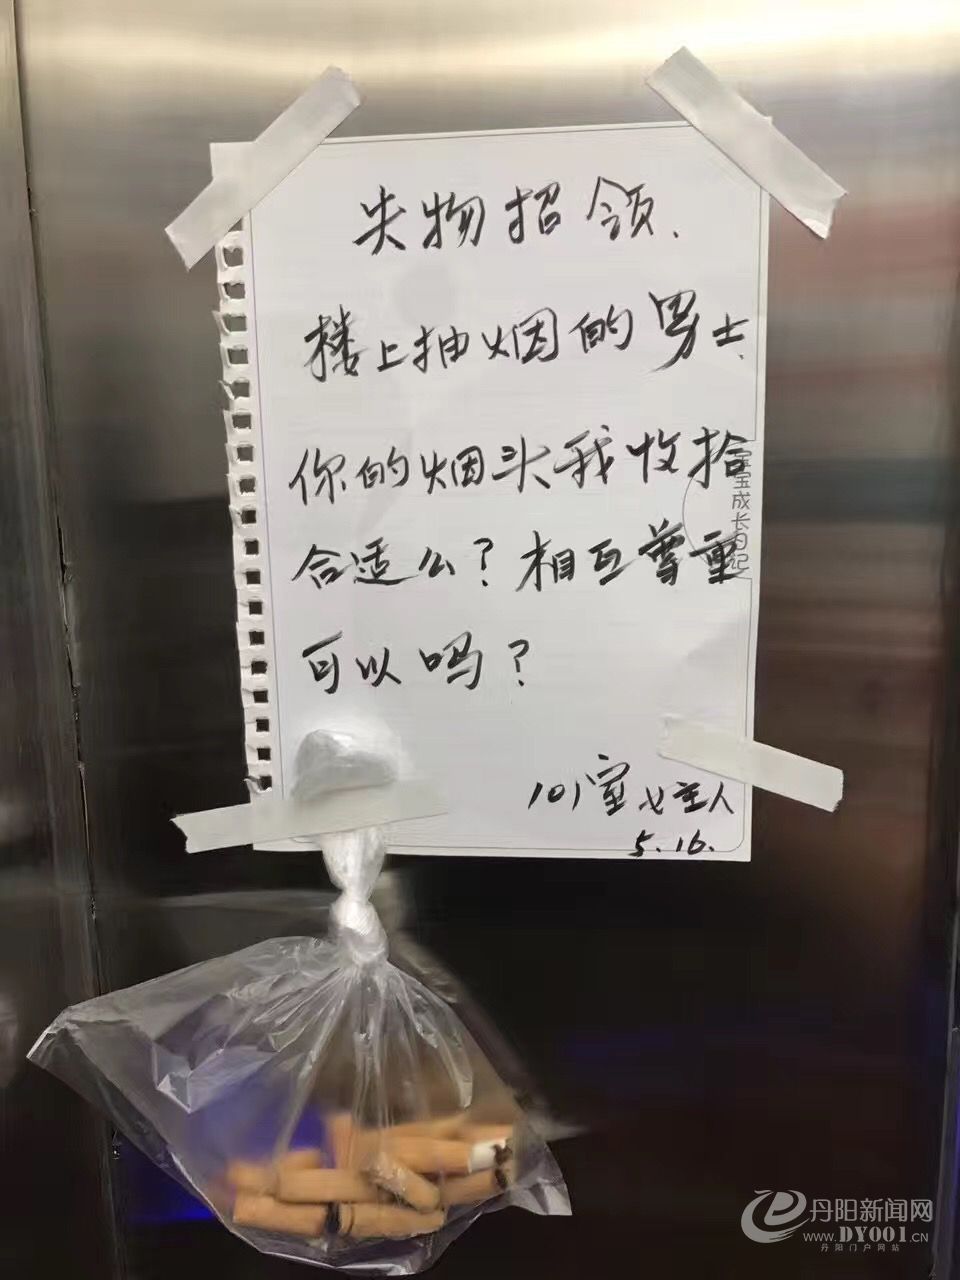 失物招领.
楼上抽烟的男士.
你的烟头我收拾
合适么？相互尊重
可以吗？
101室女主人
5.16.
宝宝成长日记
丹阳新闻网
WWW.DY001.CN
丹阳门户网站